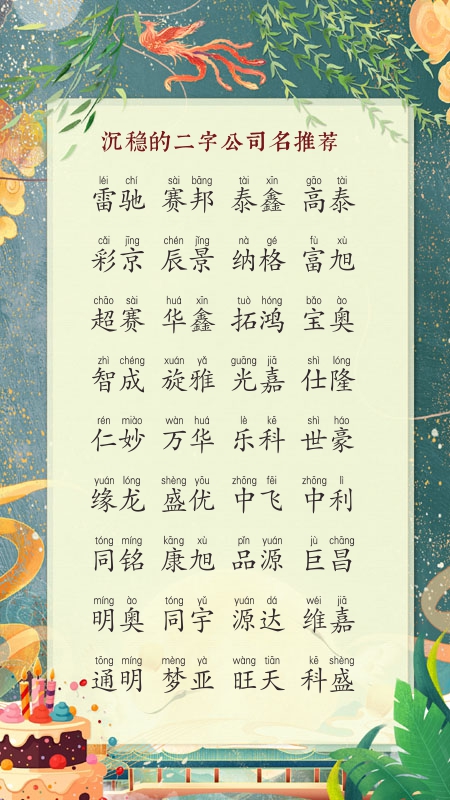 沉稳的二字公司名推荐
léi chí sài bāng tài xīn gāo tài
雷驰 赛邦 泰鑫 高泰
cǎi jīng chén jǐng nà gé fù xù
彩京 辰景 纳格 富旭
chāo sài huá xīn tuò hóng bǎo ào
超赛 华鑫 拓鸿 宝奥
zhì chéng xuán yǎ guāng jiā shì lóng
智成 旋雅 光嘉 仕隆
rén miào wàn huá lè kē shì háo
仁妙 万华 乐科 世豪
yuán lóng shèng yōu zhōng fēi zhōng lì
缘龙 盛优 中飞 中利
tóng míng kāng xù pǐn yuán jù chāng
同铭 康旭 品源 巨昌
míng ào tóng yǔ yuán dá wéi jiā
明奥 同宇 源达 维嘉
tōng míng mèng yà wàng tiān kē shèng
通明 梦亚 旺天 科盛